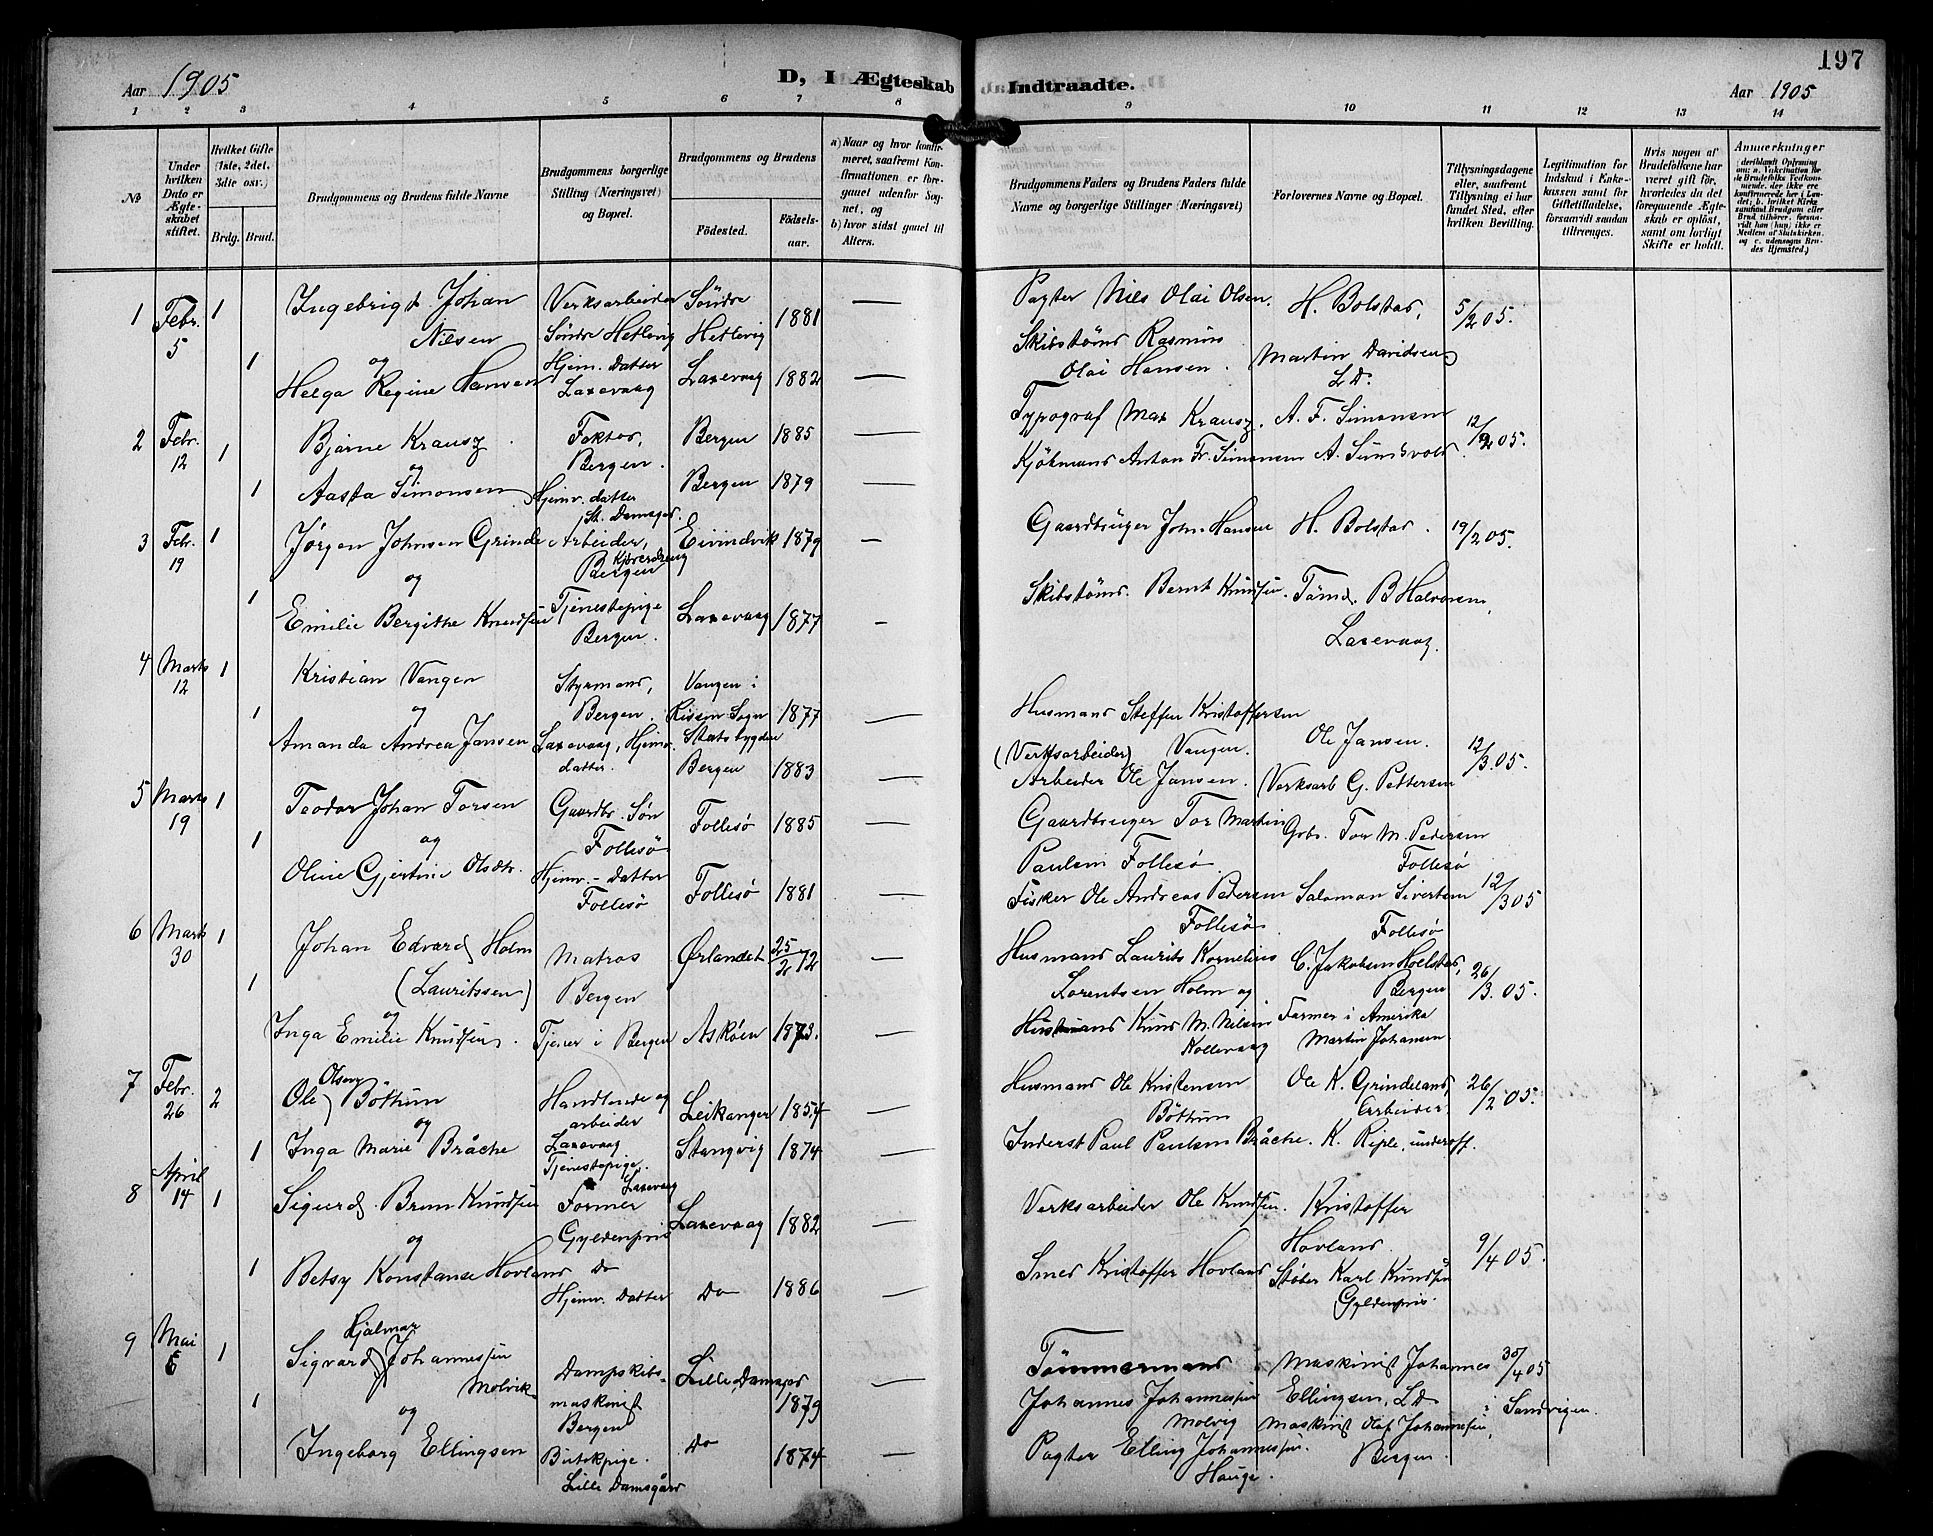 197
Aar 1905
D, I Ægteskab Indtraadte.
Aar 1905
1 2 3 4 5 6 7 8 9 10 11 12 13 14
No
Under hvilken Dato er Ægteskabet stiftet.
Hvilket Gifte (1ste, 2det, 3dte osv.)
Brdg. Brud.
Brudgommens og Brudens fulde Navne
Brudgommens borgerlige Stilling (Næringsvei) og Bopæl.
Brudgommens og Brudens
Födested.
Födselsaar.
a) Naar og hvor konfirmeret, saafremt Konfirmationen er foregaaet udenfor Sognet, og
b) hvor sidst gaaet til Alters.
Brudgommens Faders og Brudens Faders fulde Navne og borgerlige Stillinger (Næringsvei)
Forlovernes Navne og Bopæl.
Tillysningsdagene eller, saafremt Tillysning ei har fundet Sted, efter hvilken Bevilling.
Legitimation for Indskud i Enkekassen samt for Giftetilladelse, forsaavidt saadan tiltrænges.
Hvis nogen af Brudefolkene har været gift för, hvorledes da det foregaaende Ægteskab er oplöst, samt om lovligt Skifte er holdt.
Anmerkninger
1 Febr. 5 1 Ingebrigt Johan Nilsen Verksarbeider Söndre Hetlevig Söndre Hetlevig 1881 — Pagter Nils Olai Olsen. H. Bolstad, 5/2 05.
og
1 Helga Regine Hansen Hjem. Datter Laxevaag Laxevaag 1882 — Skibstömr Rasmus Olai Hansen. Martin Davidsen LD.
2 Febr. 12 1 Bjarne Krausz Faktor, Bergen. Bergen 1885 — Typograf Max Krausz. A. F. Simonsen 12/2 05.
og
1 Aasta Simonsen Hjemv. datter St. Damsgrd. Bergen 1879 — Kjöbmand Anton Fr. Simonsen A. Sundsvold.
3 Febr. 19 1 Jörgen Johnsen Grinde Arbeider, Bergen Eivindvik 1879 — Gaardbruger John Hansen H. Bolstad. 19/2 05.
og
1 Emilie Bergithe Knudsen Tjenestepige Bergen. Laxevaag 1877 — Skibstömr. Bernt Knudsen. Tömd. B Halvorsen, Laxevaag.
4 Marts 12 1 Kristian Vangen Styrmand, Bergen. Vangen i Rissen Sogn Stadsbygden 1877 — Husmand Steffen Kristoffersen Vangen. Ole Jansen. 12/3. 05.
og
1 Amanda Andrea Jansen Laxevaag, Hjemv. datter. Bergen 1883 — (Verksarbeider) Arbeider Ole Jansen. Verksarb G. Pettersen
5 Marts 19 1 Teodor Johan Torsen Gaardbr. Sön Follesö Follesö 1885 — Gaardbruger Tor Martin Paulsen Follesö. Gbr. Tor M. Pedersen Follesö
og
1 Oline Gjertine Olsdtr. Hjemv.-Datter Follesö Follesö 1881 — Fisker Ole Andreas Pedersen Follesö. Salomon Sivertsen Follesö 12/3 05
6 Marts 30 1 Johan Edvard Holm (Lauritssen) Matros Bergen Ørlandet 25/2 72 — Husmand Laurits Kornelius Lorentsen Holm og C. Jakobsen Holstad, Bergen 26/3. 05.
og
1 Inga Emilie Knudsen. Tjener i Bergen Asköen 1873. — Husmand Knud M. Nilsen Kollevaag Farmer i Amerika Martin Johansen.
7 Febr. 26 2 Ole Olsen Böthun Handlende og arbeider Laxevaag Leikanger 1854 — Husmand Ole Kristensen Böthun Ole K. Grindeland, Arbeider. 26/2 05.
og
1 Inga Marie Bråche Tjenestepige. Laxevaag Stangvig 1874 — Inderst Paul Paulsen Bråche. K. Riple, underoff.
8 April 14 1 Sigurd Brun Knudsen Former Gyldenpris Laxevaag 1882 — Verksarbeider Ole Knudsen. Kristoffer Hovland. 9/4 05.
og
1 Betsy Konstanse Hovland Do Hjemv. Datter Do 1886 — Smed Kristoffer Hovland Stöber Karl Knudsen Gyldenpris.
9 Mai 6 1 Sigvard Hjalmar Johannessen Molvik Dampskibsmaskinist Bergen Lille Damsgrd 1879 — Tömmermand Johannes Johannessen Molvig Maskinist Johannes Ellingsen, LD 30/4 05
og
1 Ingeborg Ellingsen Butikpige. Lille Damsgård Do 1874 — Pagter Elling Johannessen. Hauge. Maskinist Olaf Johannesen, i Sandvigen. Bergen.